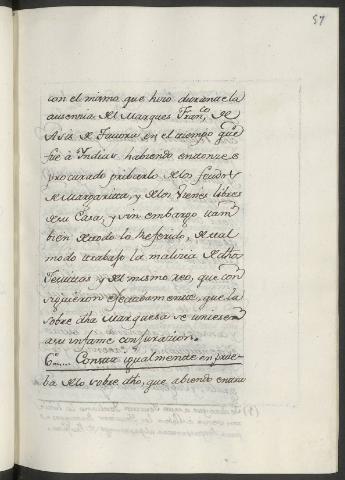 57
con el mismo que hizo durante la
ausencia del Marques Fran.co de
Asis de Tavora en el tiempo que
fue à Indias habiendo entonces
procurado privarlo de los feudos
de Margarita, y de los vienes libres
de su Casa, y sin embargo tam
bien de todo lo referido, de tal
modo trabajo la malicia de dhos
Jesuitas y del mismo reo, que con
siguieron efectivamente, que la
sobre dha Marquesa se uniese
a su infame conjuracion.
6.... Consta igualmente en prue
ba de lo sobre dho, que abiendo entra